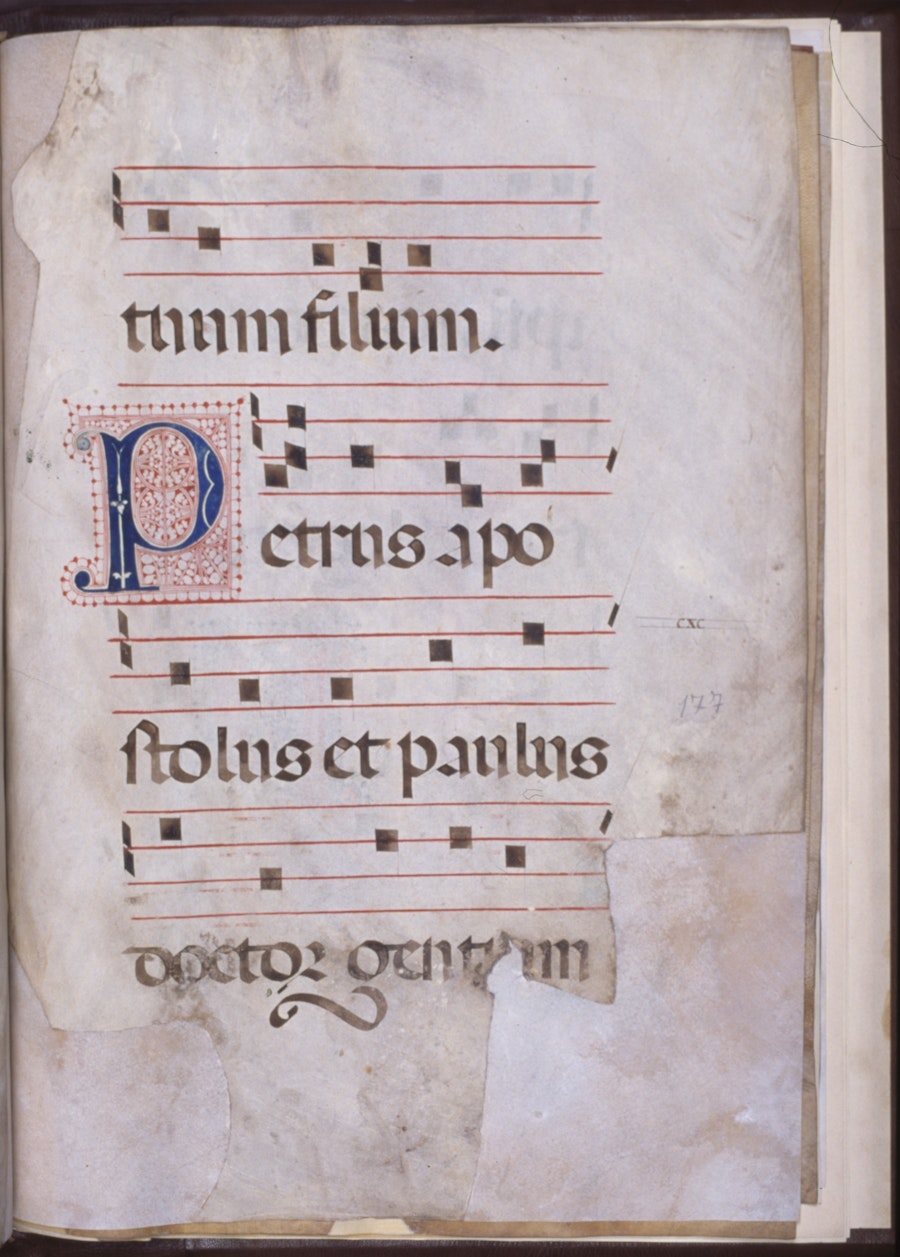 tuum filium.
Petrus apo
cxc
177
stolus et paulus
doctor gentium